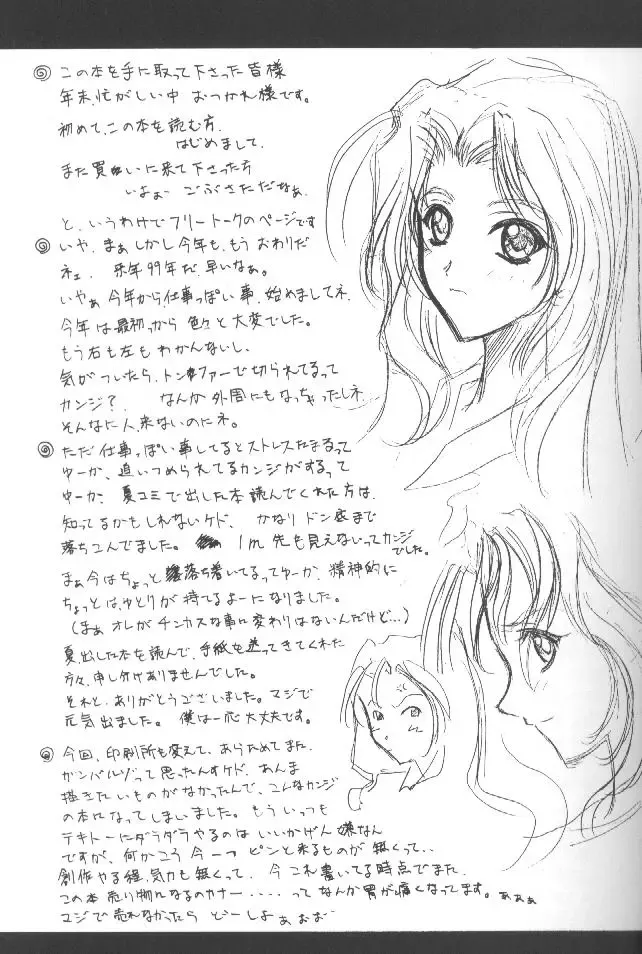 この本を手に取って下さった皆様
年末、忙がしい中 おつかれ様です。
初めて、この本を読む方、
はじめまして、
また買いに来て下さった方
いよぉ ごぶさただなぁ、
と、いうわけでフリートークのページです
いや、まぁしかし今年も、もう おわりだ
ネェ、 来年99年だ 早いなぁ。
いやぁ 今年から仕事っぽい事、始めましてネ、
今年は最初っから 色々と大変でした。
もう右も左もわかんないし、
気がついたら、トンファーで切られてるって
カンジ? なんか 外周にもなっちゃったしネ
そんなに人、来ないのにネ。
ただ仕事っぽい事してるとストレスたまるって
ゆーか、追いつめられてるカンジがするって
ゆーか、 夏コミで出した本読んでくれた方は、
知ってるかもしれないケド、 かなり ドン底まで
落ちこんでました。 1m先も見えないってカンジ
でした。
まぁ今はちょっと 落ち着いてるってゆーか、精神的に
ちょっとは、ゆとりが 持てるよーになりました。
(まぁ オレがチンカスな事に変わりはないんだけど…)
夏、出した本を読んで、手紙を送ってきてくれた
方々、申し分けありませんでした。
それと、ありがとうございました。マジで
元気出ました。 僕は一応大丈夫です。
今回、印刷所も変えて、あらためてまた、
ガンバルゾって思ったんすケド、あんま
描きたいものがなかったんで、こんなカンジ
の本になってしまいました。もういっつも
テキトーにダラダラやるのは いいかげん 嫌なん
ですが、何かこう 今一つ ピンと来るものが 無くって‥
創作やる程、気力も無くって、 今 これ書いてる時点でまだ、
この本 売り物になるのカナー‥‥‥ って なんか胃が痛くなってます。ぁぁぁ
マジで売れなかったら どーしよ ぁぉぉ